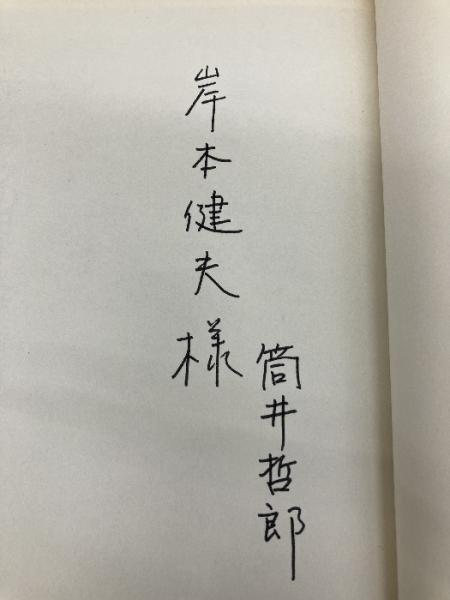 岸本健夫様
筒井哲郎